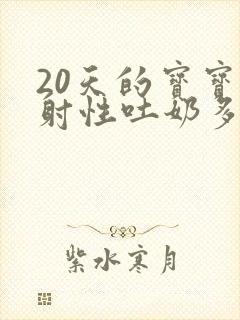 20天的宝宝
射性吐奶多
紫水寒月